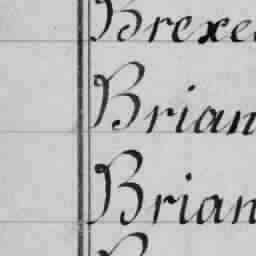 Brexe
Brian
Brian